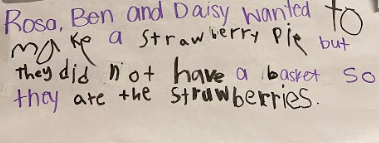 Rosa, Ben and Daisy wanted to
make a strawberry pie but
they did not have a basket so
they ate the strawberries.